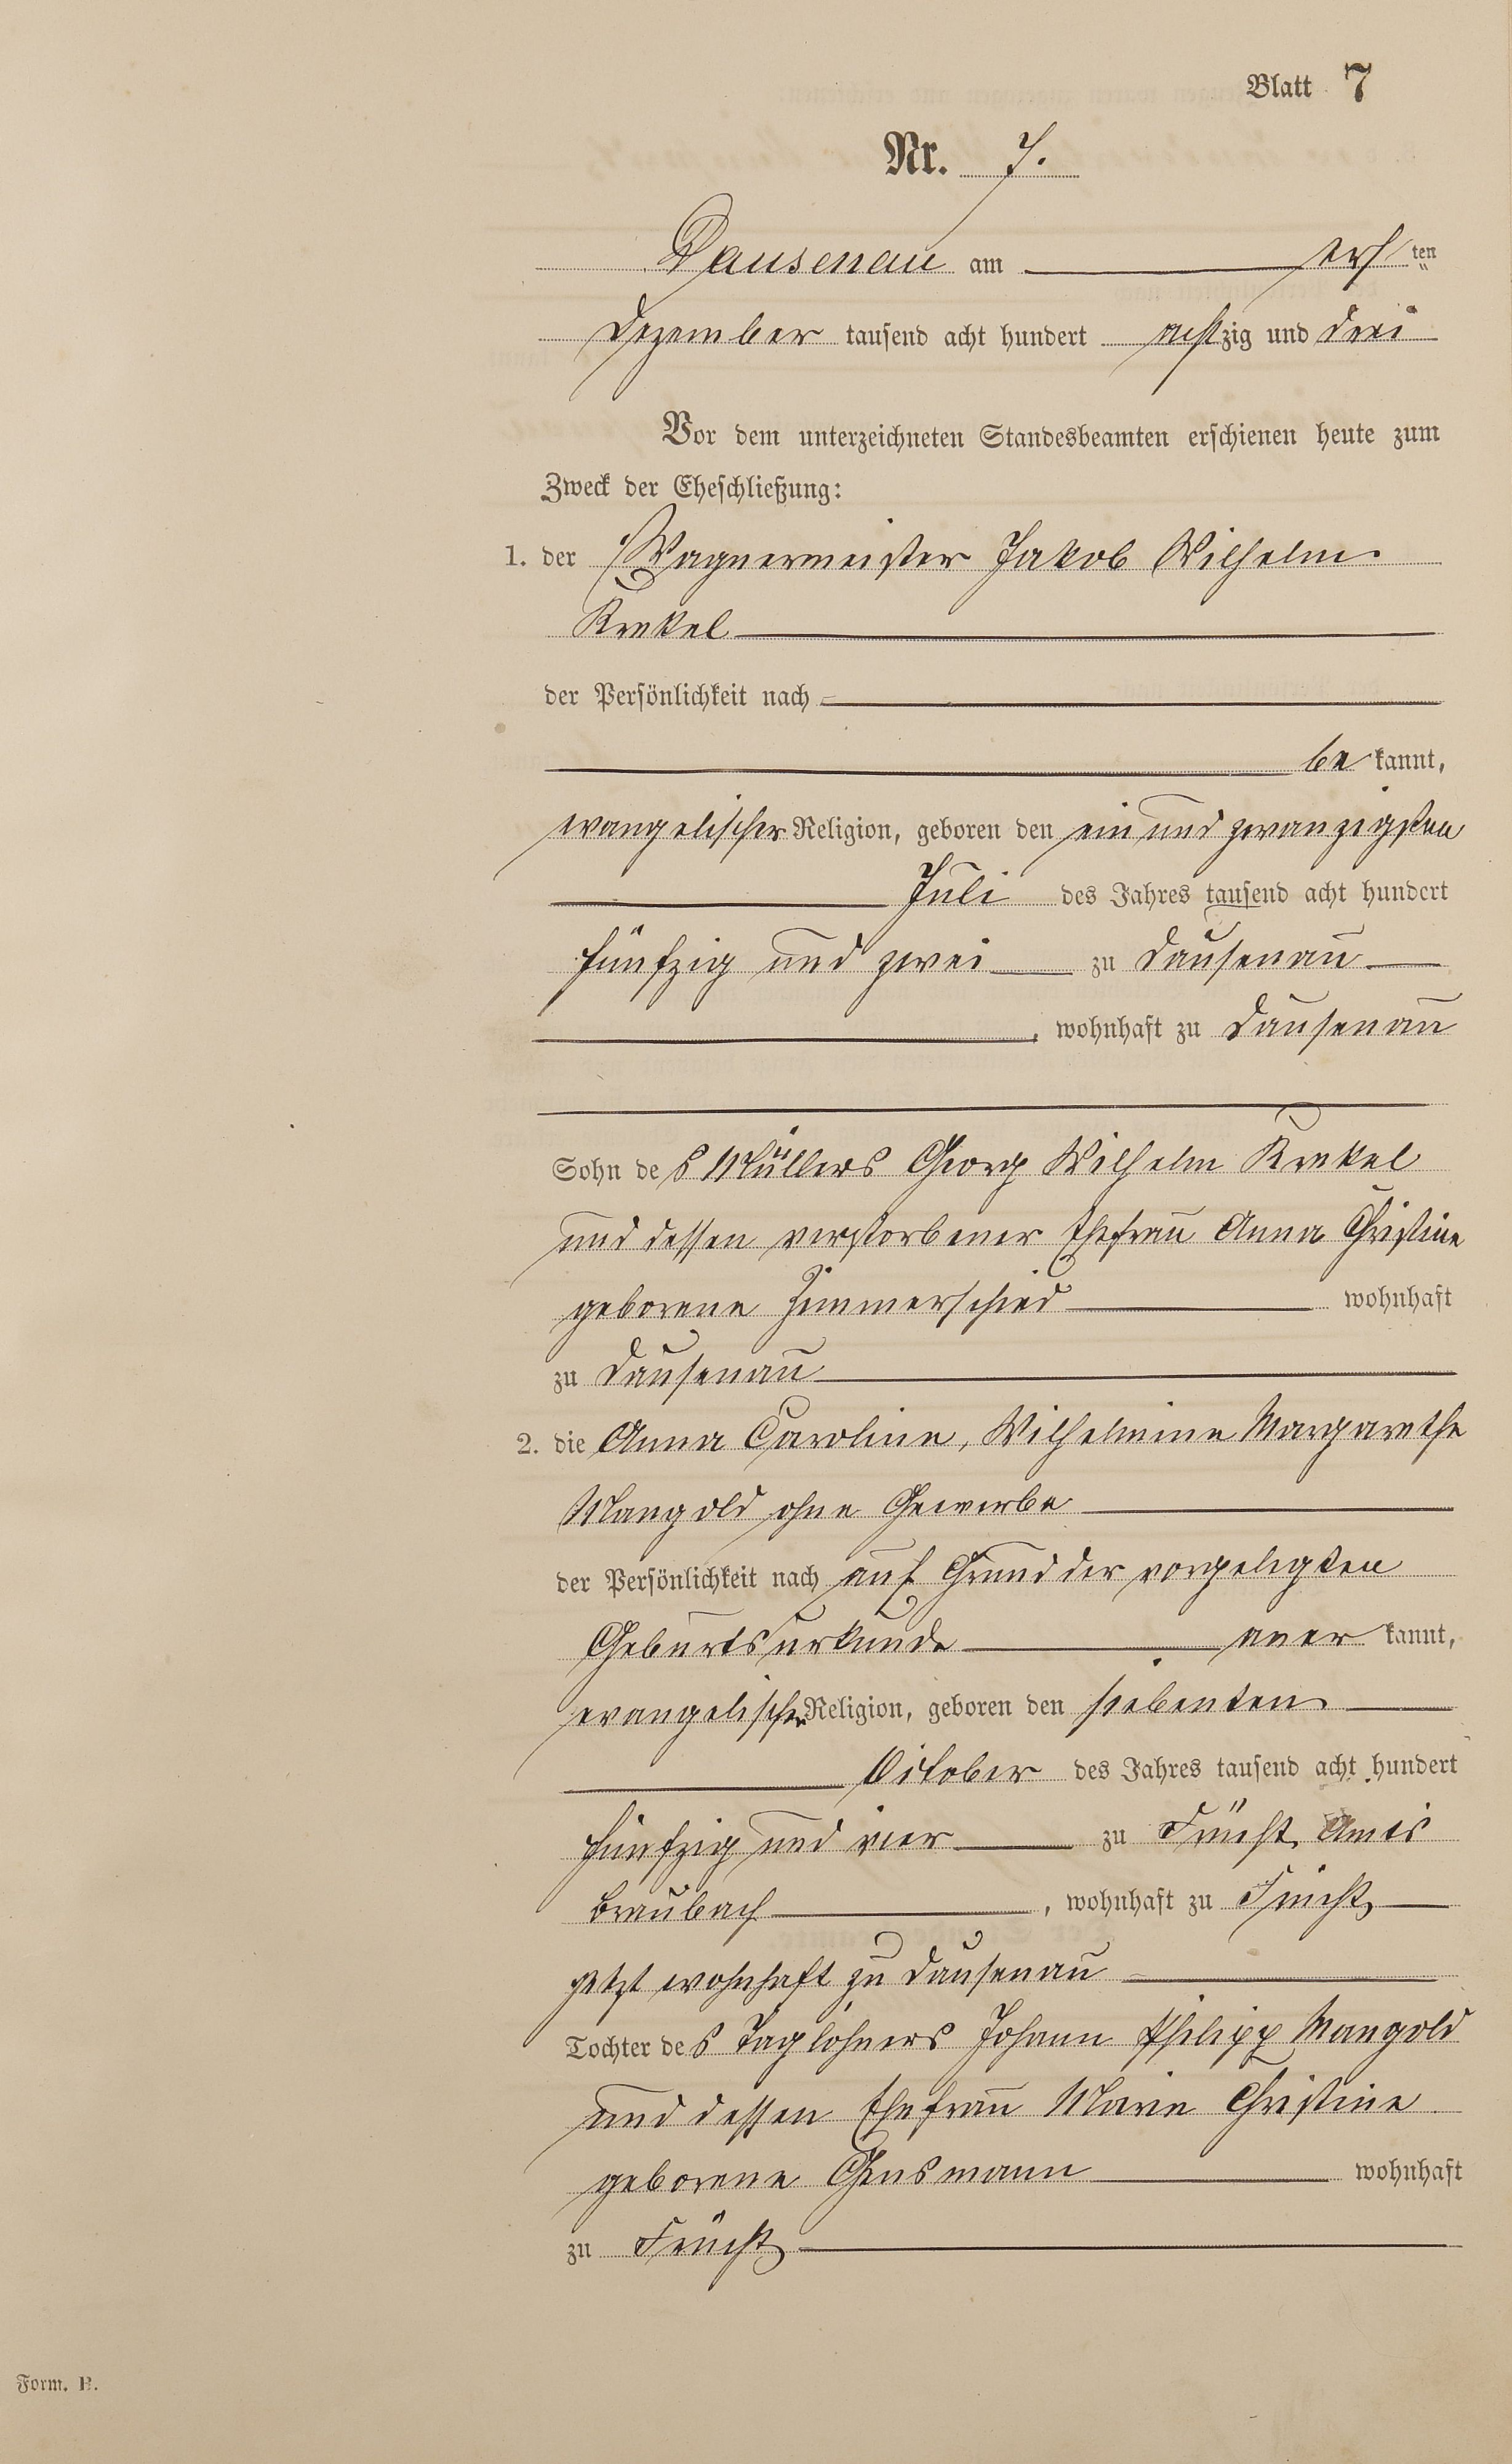 Blatt 7
Nr. 7.
Dausenau am ersten
Dezember tausend acht hundert achtzig und drei
Vor dem unterzeichneten Standesbeamten erschienen heute zum
Zweck der Eheschließung:
1. der Wagnermeister Jakob Wilhelm
Krekel
der Persönlichkeit nach
bekannt,
evangelischer Religion, geboren den ein und zwanzigsten
Juli des Jahres tausend acht hundert
fünfzig und zwei zu Dausenau
, wohnhaft zu Dausenau
Sohn des Müllers Georg Wilhelm Krekel
und dessen verstorbener Ehefrau Anna Christine
geborene Zimmerschied wohnhaft
zu Dausenau
2. die Anna Caroline, Wilhelmine Margarethe
Mangold ohne Gewerbe
der Persönlichkeit nach auf Grund der vorgelegten
Geburtsurkunde anerkannt,
evangelischer Religion, geboren den siebenten
October des Jahres tausend acht hundert
fünfzig und vier zu Frücht, Amts
Braubach, wohnhaft zu Frücht,
jetzt wohnhaft zu Dausenau
Tochter des Taglöhners Johann Philipp Mangold
und dessen Ehefrau Marie Christine
geborene Gensmann wohnhaft
zu Frücht,
Form. B.